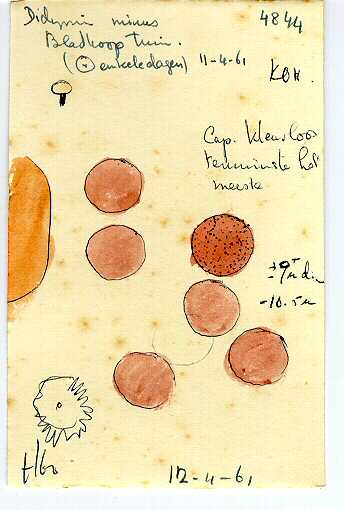 Didymium minus 4844
Bladhoop tuin.
(enkele dagen) 11-4-61
KOH.
Cap. kleurloos
tenminste het
meeste
± 9
-10.5 µ
12-4-61